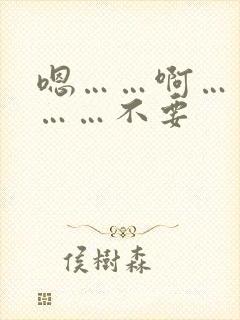 嗯……啊…
……不要
侯樹森